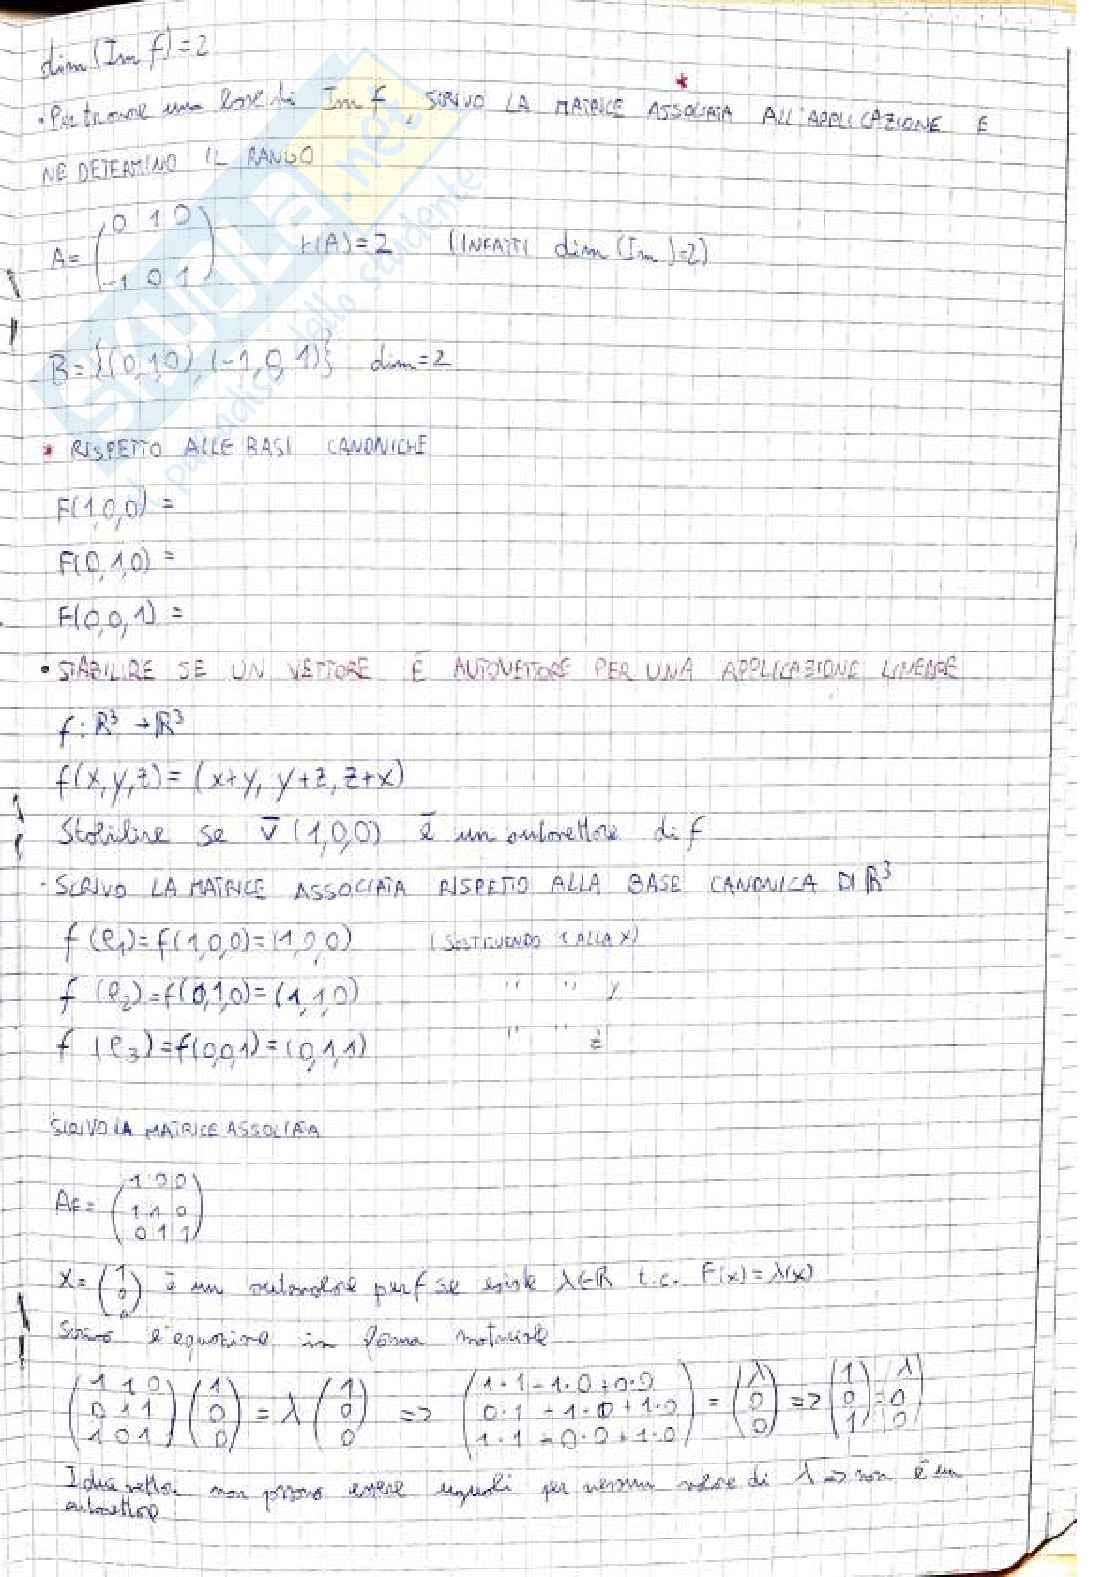 dim(Im f)=2
• Per trovare una base di Im f, SCRIVO LA MATRICE * ASSOCIATA ALL'APPLICAZIONE E
NE DETERMINO IL RANGO
A= ( 0 1 0
-1 0 1 ) r(A)=2 (INFATTI dim(Im)=2)
B={(0,1,0),(-1,0,1)} dim=2
* RISPETTO ALLE BASI CANONICHE
F(1,0,0) =
F(0,1,0) =
F(0,0,1) =
• STABILIRE SE UN VETTORE È AUTOVETTORE PER UNA APPLICAZIONE LINEARE
f: ℝ³ → ℝ³
f(x,y,z)= (x+y, y+z, z+x)
Stabilire se v̄ (1,0,0) è un autovettore di f
· SCRIVO LA MATRICE ASSOCIATA RISPETTO ALLA BASE CANONICA DI ℝ³
f(e₁)=f(1,0,0)=(1,0,0) (SOSTITUENDO 1 ALLA X)
f(e₂)=f(0,1,0)=(1,1,0) " " y
f(e₃)=f(0,0,1)=(0,1,1) " " z
SCRIVO LA MATRICE ASSOCIATA
AF= ( 1 0 0
1 1 0
0 1 1 )
X= (1 0 0) è un autovettore per f se esiste λ∈ℝ t.c. F(x)=λ(x)
Scrivo l'equazione in forma matriciale
(1 1 0) (1) = λ (1) => (1·1-1·0+0·0) = (λ) => (1) = λ
(0 1 1) (0) (0) (0·1+1·0+1·0) (0) (0) 0
(1 0 1) (0) (0) (1·1+0·0+1·0) (0) (1) 0
I due vettori non possono essere uguali per nessun valore di λ => non è un
autovettore
SKUOLA.net
paradiso dello studente